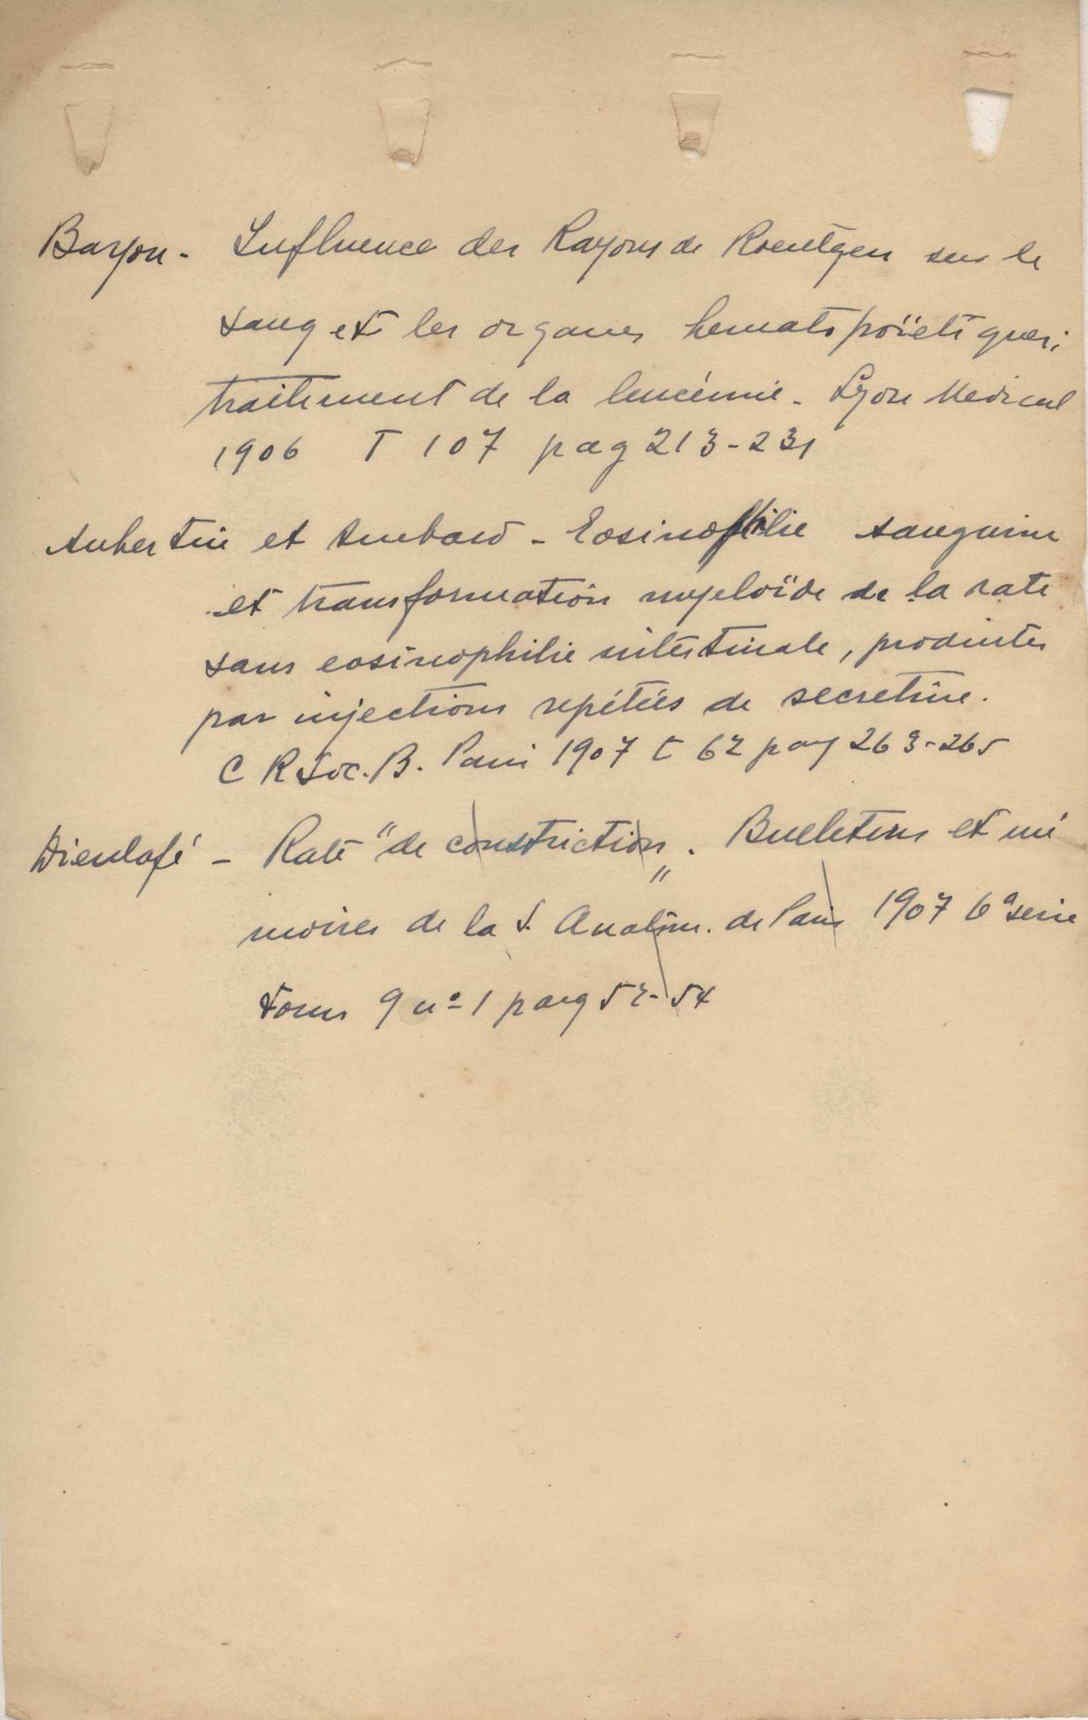 Bayon - Influence des Rayons de Roentgen sur le
sang et les organes hematopoïetiques;
traitement de la leucémie - Lyon Medical
1906 T 107 pag 213-231
Aubertin et Ambard - Eosinophilie sanguine
et transformation myeloïde de la rate
sans eosinophilie intestinale, produites
par injections repétées de secretine.
C R Soc. B. Paris 1907 t 62 pag 263-265
Dieulafé - Rate "de constriction". Bulletins et mé
moires de la S. Anatom. de Paris 1907 6ª serie
Tome 9 nº 1 pag 52-54